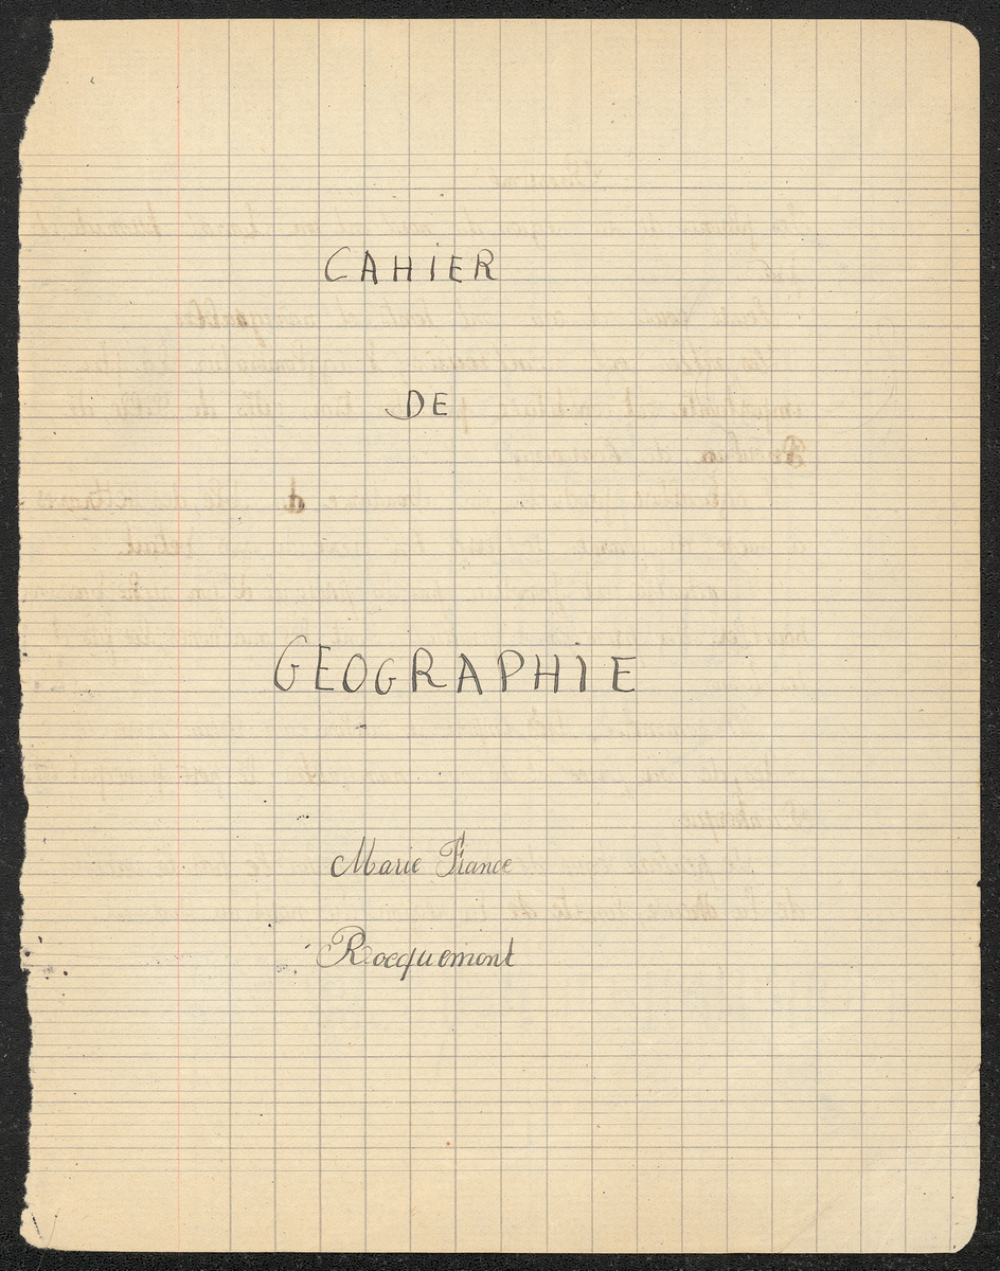 CAHIER
DE
GEOGRAPHIE
Marie France
Rocquemont